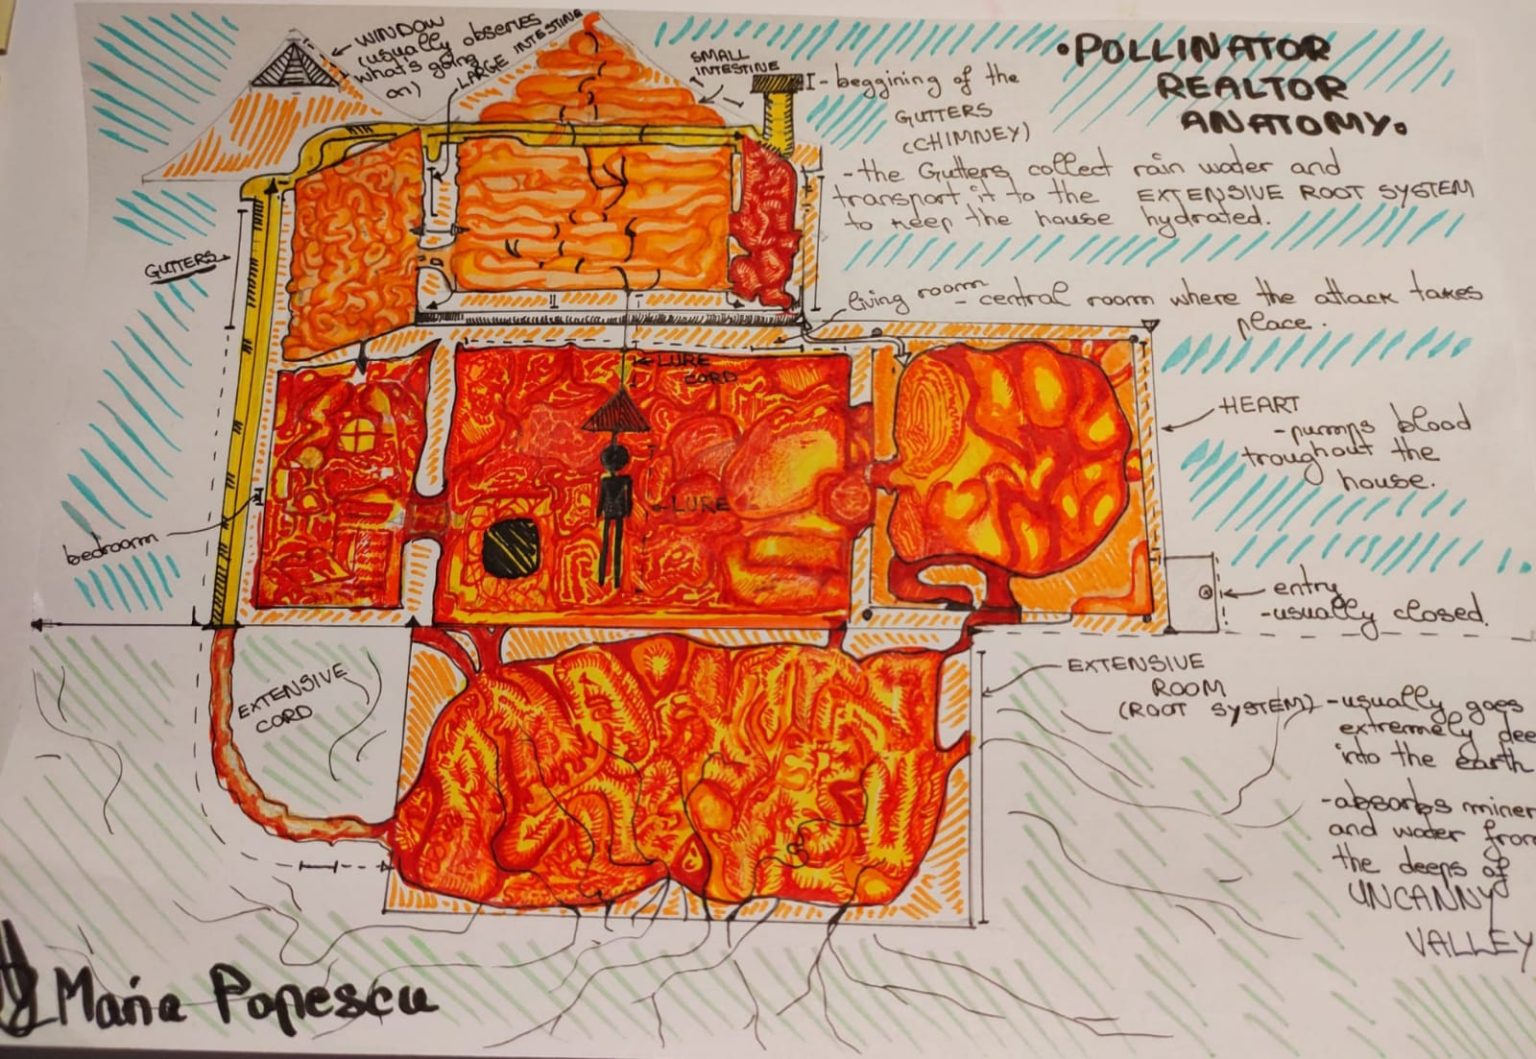 WINDOW
(usually observes
what's going
on)
LARGE INTESTINE
SMALL
INTESTINE
• POLLINATOR
REALTOR
ANATOMY.
I - beggining of the
GUTTERS
(CHIMNEY)
- the Gutters collect rain water and
transport it to the EXTENSIVE ROOT SYSTEM
to keep the house hydrated.
GUTTERS
II
living room - central room where the attack takes
place.
LURE
CORD
HEART
- pumps blood
troughout the
house.
LURE
bedroom
entry
- usually closed.
EXTENSIVE
CORD
EXTENSIVE
ROOM
(ROOT SYSTEM) - usually goes
extremely dee
into the earth
- absorbs miner
and water from
the deeps of
UNCANNY
VALLEY
Maria Popescu